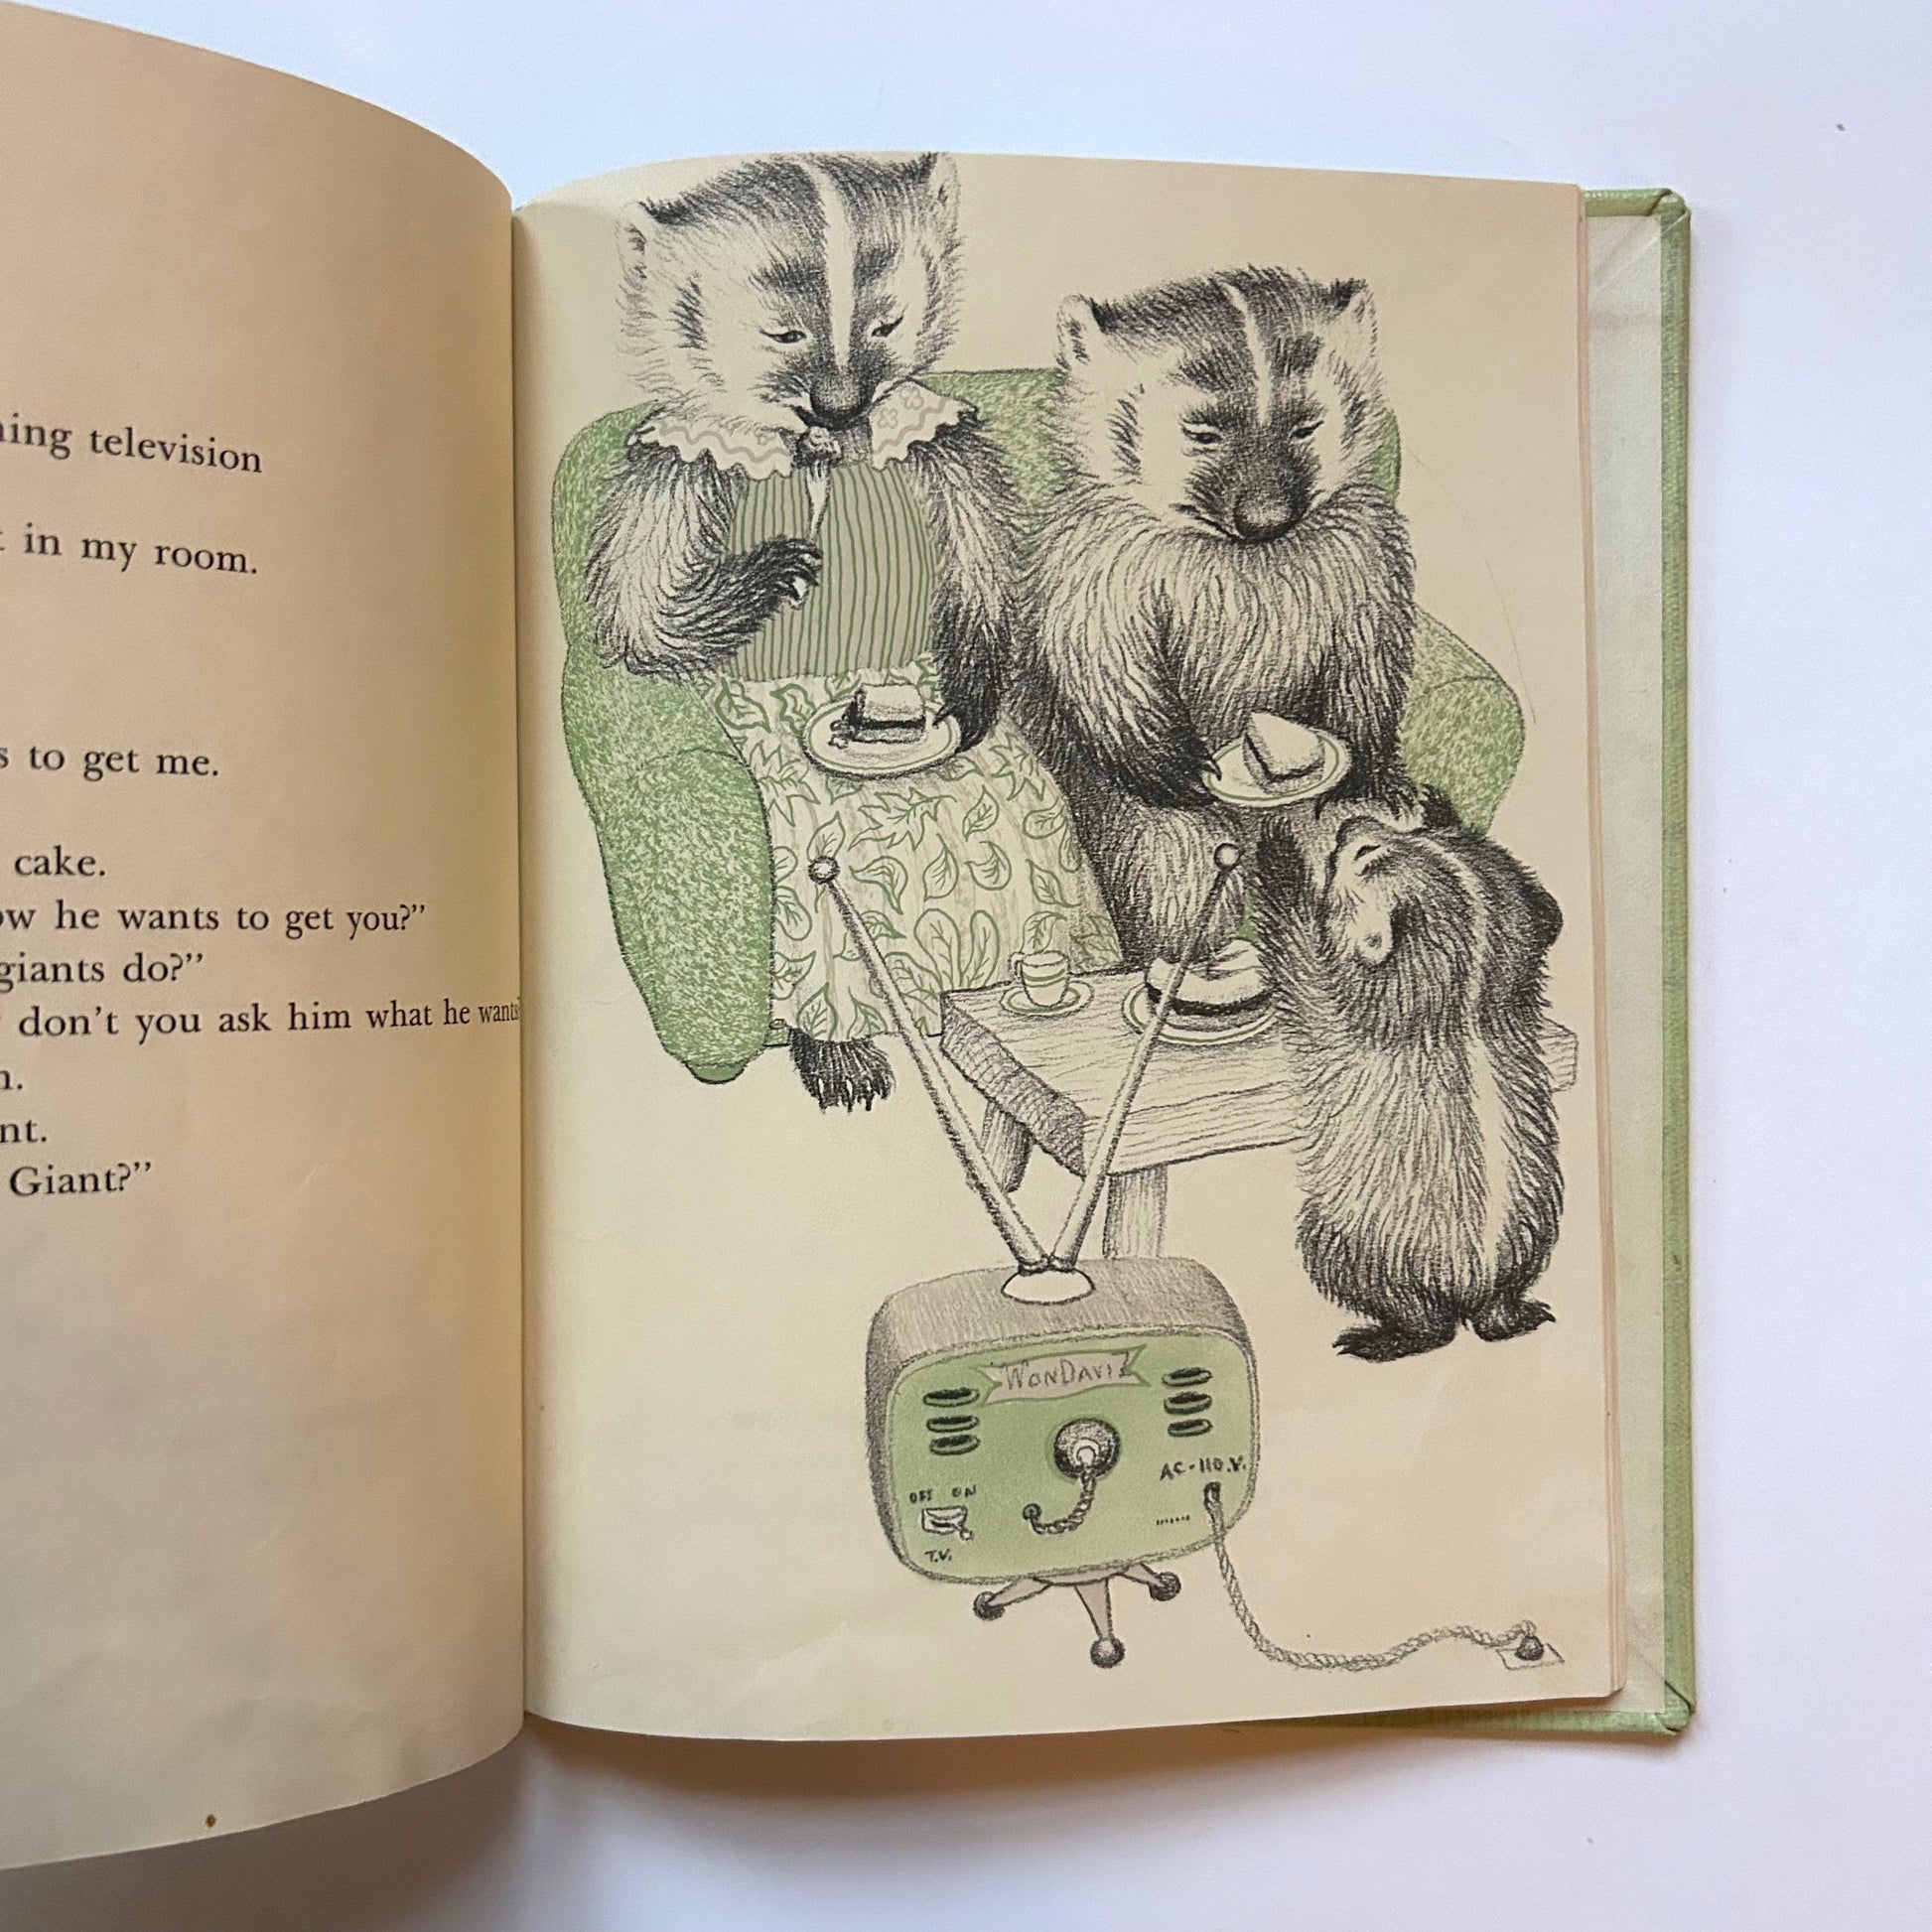 ing television
in my room.
s to get me.
cake.
ow he wants to get you?”
giants do?”
don’t you ask him what he wants
n.
nt.
Giant?”
WONDAVI
OFF ON
T.V.
AC-110.V.